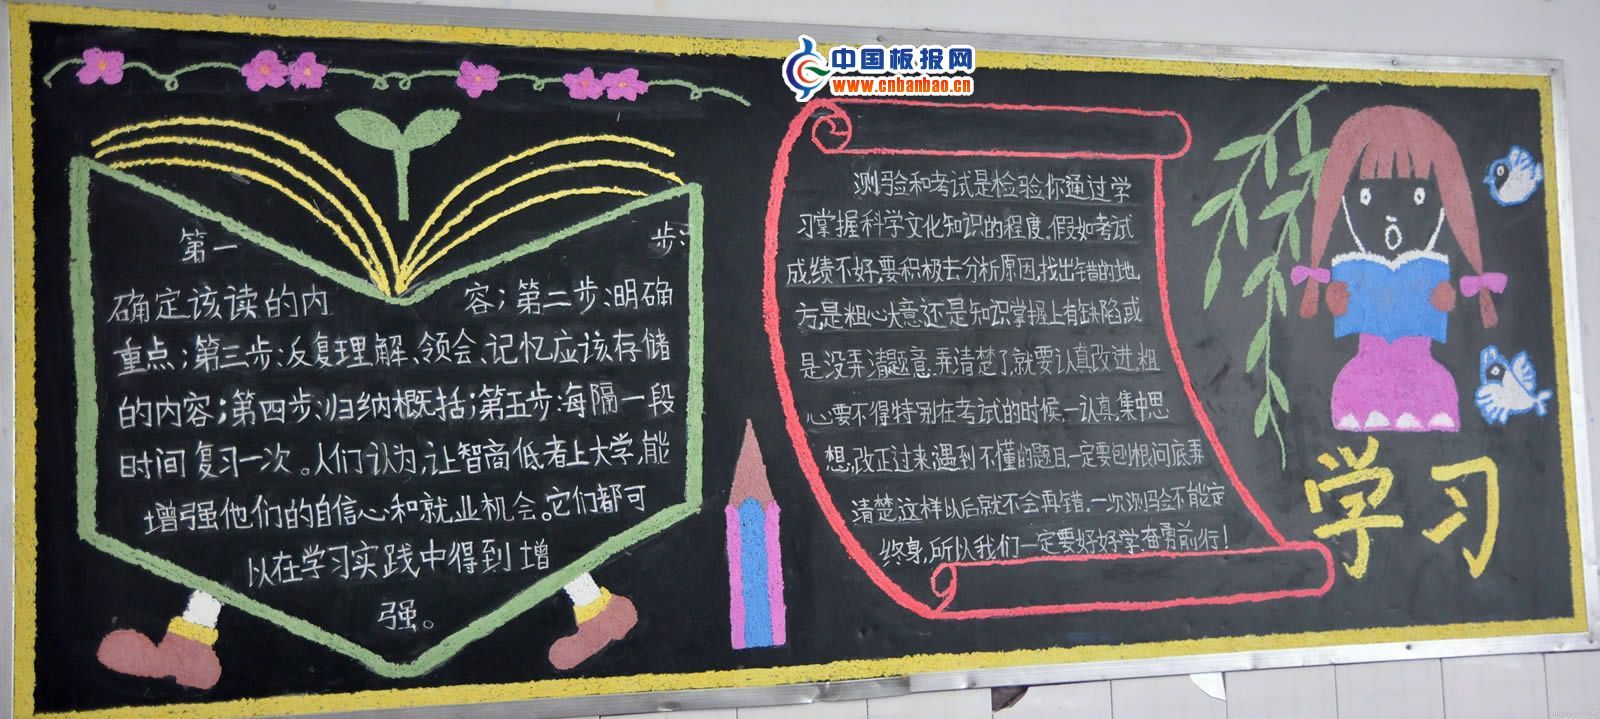 中国板报网
www.cnbanbao.cn
第一 步:
确定该读的内 容;第二步:明确
重点;第三步:反复理解、领会、记忆应该存储
的内容;第四步:归纳概括;第五步:每隔一段
时间复习一次。人们认为,让智商低者上大学,能
增强他们的自信心和就业机会。它们都可
以在学习实践中得到增
强。
测验和考试是检验你通过学
习掌握科学文化知识的程度。假如考试
成绩不好,要积极去分析原因,找出错的地
方,是粗心大意还是知识掌握上有缺陷,或
是没弄清题意,弄清楚了,就要认真改进。粗
心要不得特别在考试的时候,一认真,集中思
想,改正过来,遇到不懂的题目,一定要刨根问底弄
清楚,这样以后就不会再错。一次测验不能定
终身,所以我们一定要好好学,奋勇前行!
学习